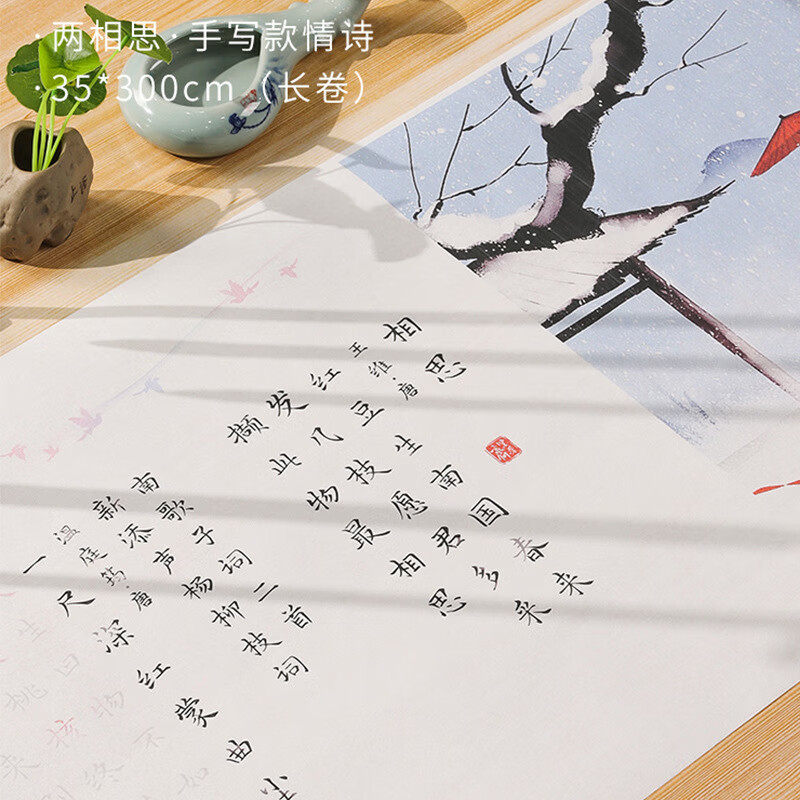 · 两相思 · 手写款情诗
· 35*300cm（长卷）
相思
王维·唐
红豆生南国春来
发几枝愿君多采
撷此物最相思
南歌子词二首
新添声杨柳枝词
温庭筠·唐
一尺深红蒙曲尘
生旧物不如
桃核终
来别